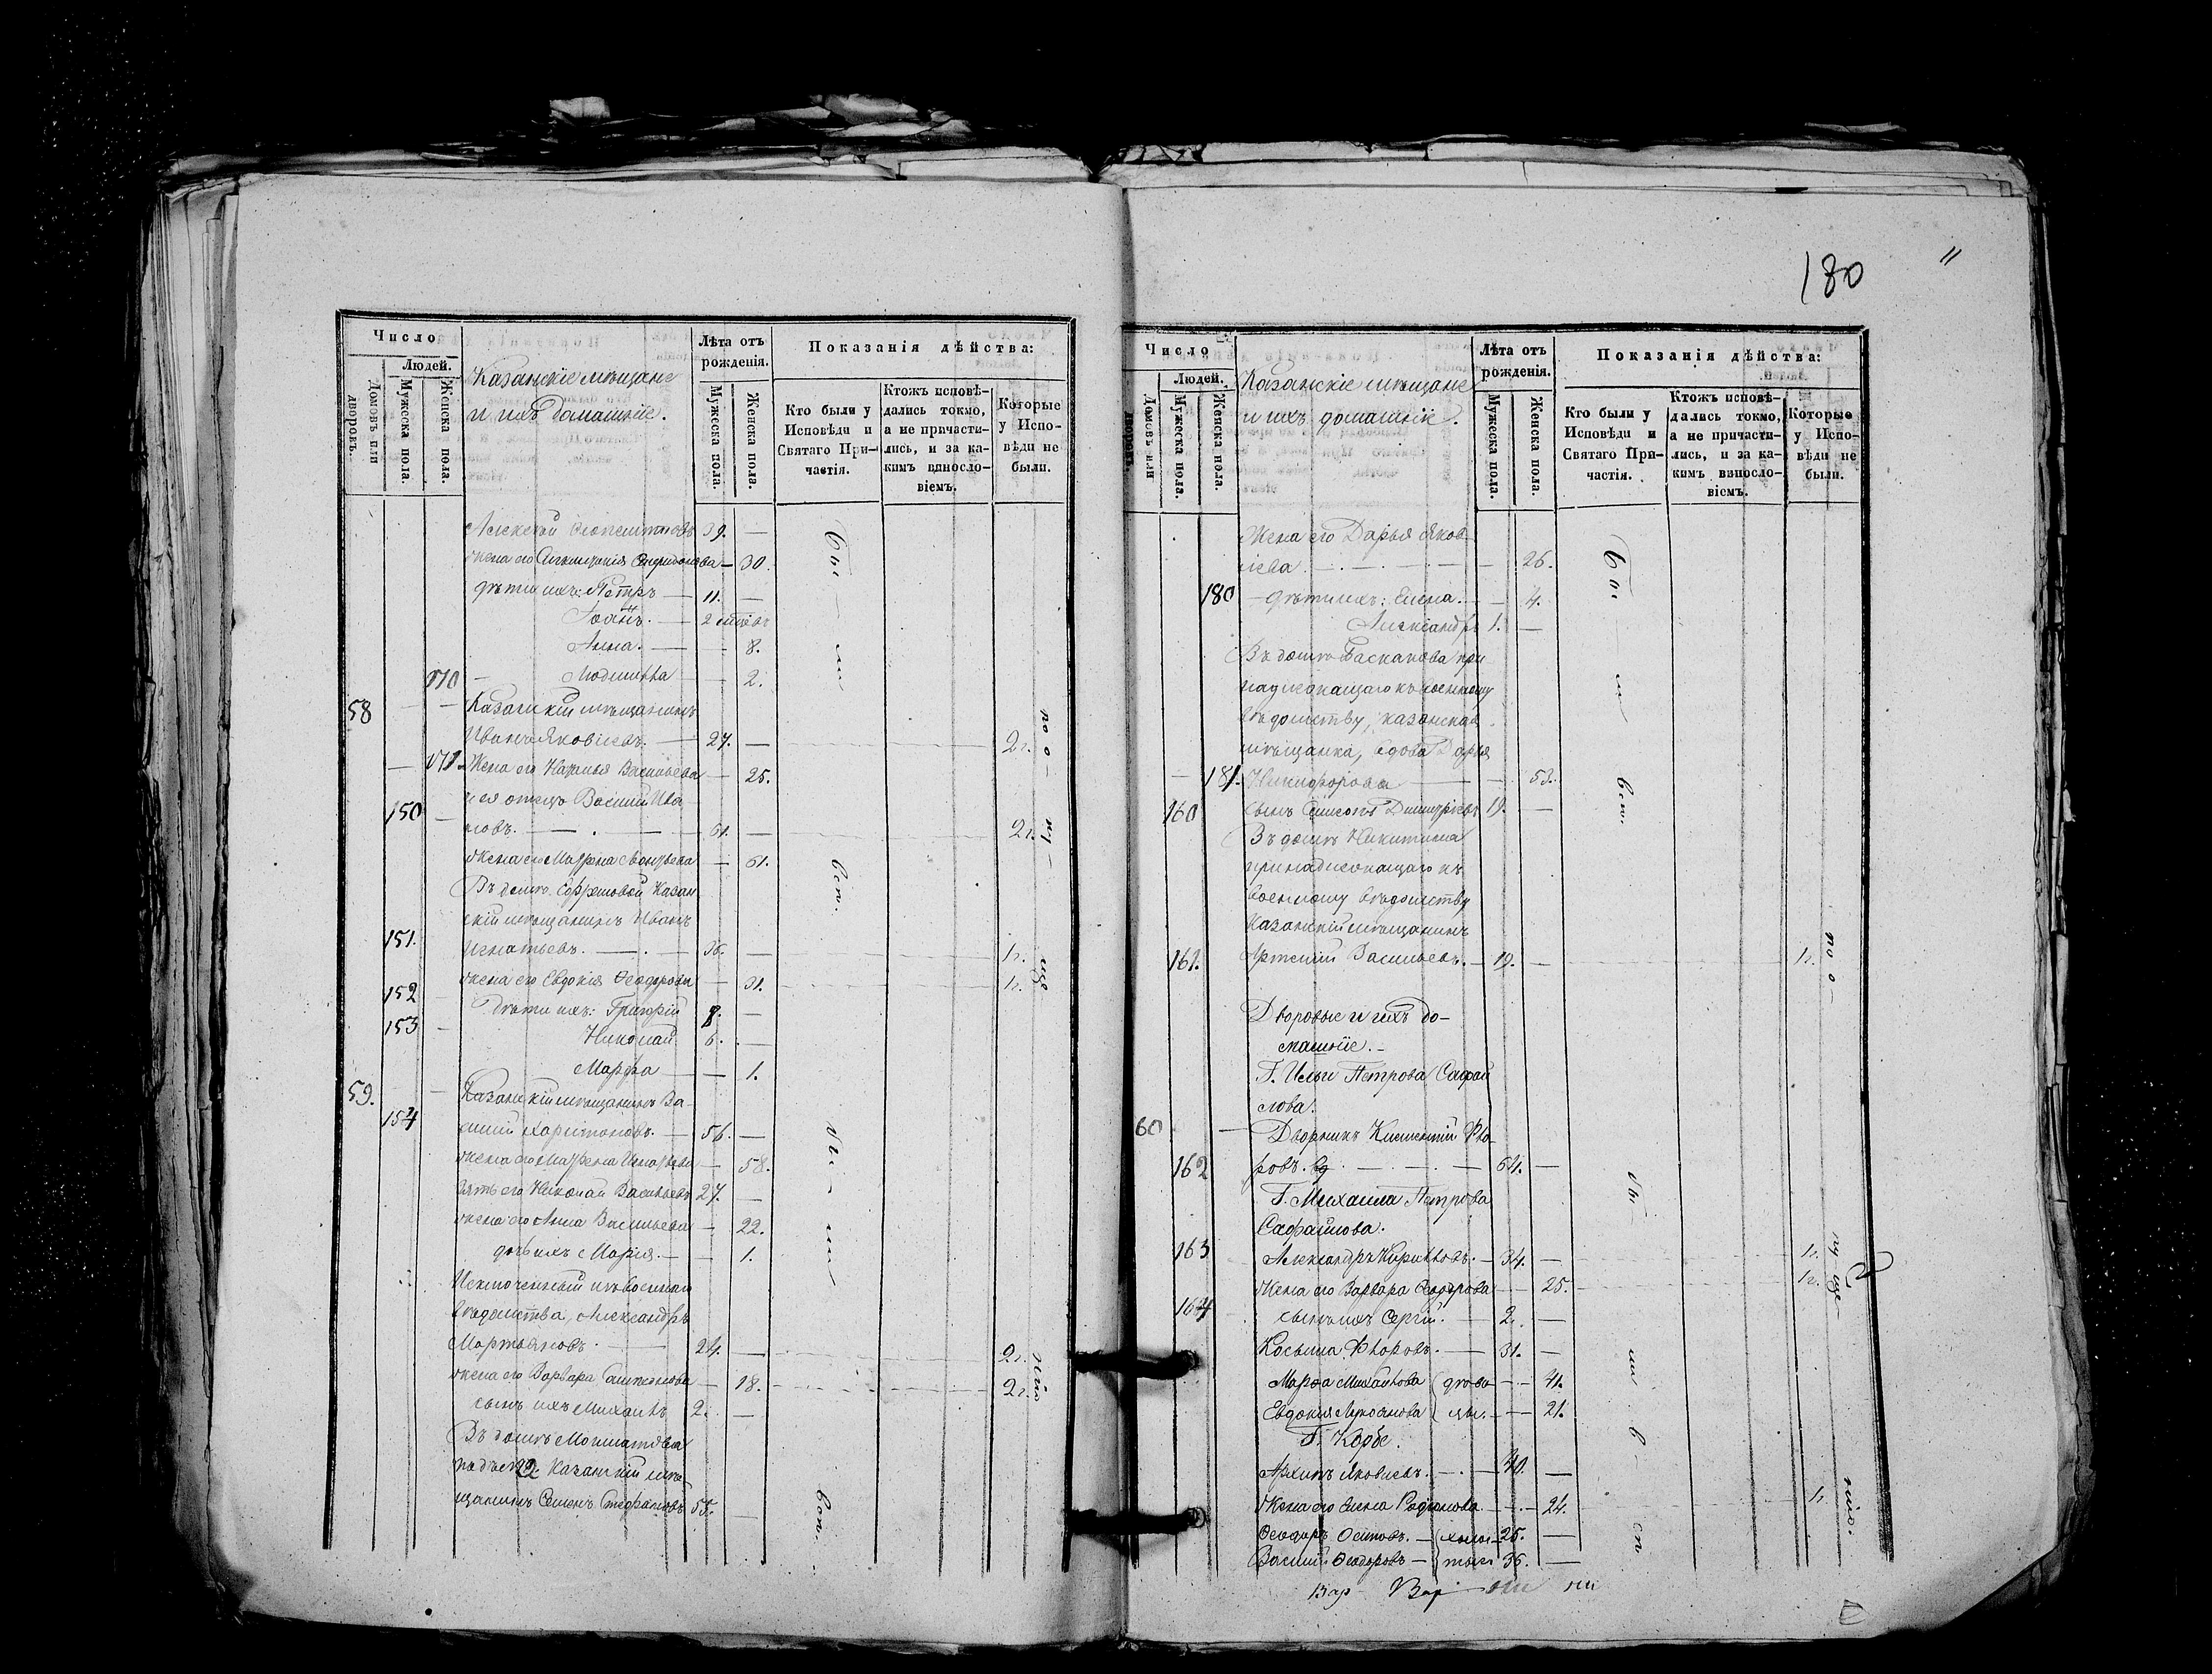 Число
Людей.
Домовъ или дворовъ.
Мужеска пола.
Женска пола.
Казанскіе мѣщане
и ихъ домашніе.
Лѣта отъ рожденія.
Мужеска пола.
Женска пола.
Показанія дѣйства:
Кто были у Исповѣди и Святаго Причастія.
Ктожъ исповѣдались токмо, а не причастились, и за какимъ винословіемъ.
Которые у Исповѣди не были.
Алексѣй 39. —
жена его Спиридонова — 30.
дѣти ихъ: Петръ — 11. —
Іоаннъ. — 2
Анна. — — 8.
170 Людмила — — 2.
58 — — Казанскій мѣщанинъ
Иванъ Яковлевъ. — 27. — 2 г.
— 171. Жена его Наталья Васильева — 25.
150 — отецъ Василій Ива
новъ. — . — 61. — 2 г.
жена его Матрена — 61.
Въ домѣ Ефремовой Казан
скій мѣщанинъ Иванъ
151. Игнатьевъ. — . — 36. — 1 г.
жена его Евдокія Ѳеодорова — 31. 1 г.
152 — Дѣти ихъ: Григорій 8. —
153 — Николай. 6. —
Марѳа — — 1.
59. — — Казанскій мѣщанинъ Ва
154 силій Харитоновъ. — 56. —
жена его Матрена — 58.
Зять его Николай Васильевъ 27. —
жена его Анна Васильева — 22.
дочь ихъ Марія. — — 1.
Исключенный изъ военнаго
вѣдомства, Александръ
Мартьяновъ. — 24. — 2 г.
жена его Варвара — 18. 2 г.
сынъ ихъ Михаилъ 2. —
Въ домѣ
Казанскій мѣ
щанинъ Семенъ Стефановъ 55. —
Бы — ли — вст.
Бы — ли — вст.
по о — пу — ще — нію
180
Число
Людей.
Домовъ или дворовъ.
Мужеска пола.
Женска пола.
Казанскіе мѣщане
и ихъ домашніе.
Лѣта отъ рожденія.
Мужеска пола.
Женска пола.
Показанія дѣйства:
Кто были у Исповѣди и Святаго Причастія.
Ктожъ исповѣдались токмо, а не причастились, и за какимъ винословіемъ.
Которые у Исповѣди не были.
Жена его Дарья Яков
лева — . — . — — 26.
180 — дѣти ихъ: Елена. — — 4.
Александръ 1. —
Въ домѣ Баскакова при
надлежащаго къ военному
вѣдомству, казанская
мѣщанка, вдова Дарья
— 181. Никифорова — — 53.
160 Сынъ Симеонъ Димитріевъ 19. —
Въ домѣ Никитина
принадлежащаго къ
военному вѣдомству
Казанскій мѣщанинъ
161. Артемій Васильевъ. — 19. — 1 г.
Дворовые и ихъ до-
машніе. —
Г. Ильи Петрова Сафай
лова.
60 — Дворникъ Климентій Фло
162 ровъ. — . — . — 64. —
Г. Михаила Петрова
Сафайлова.
163 Александръ Кирилловъ. — 34. — 1 г.
Жена его Варвара Ѳеодорова — 25. 1 г.
164 сынъ ихъ Сергій. — 2. —
Косьма Флоровъ. — 31. —
Марѳа Михайлова — — 41.
Евдокія Лукоянова — — 21.
Г. Корбе.
Архипъ Яковлевъ. — . — 40. —
Жена его Елена Родіонова — — 24. 1 г.
Ѳеодоръ Осиповъ. — холос 25. —
Василій Ѳеодоровъ — тые 36. —
Бы — ли вст.
Бы — ли в — ст
по о — пу — ще — нію.